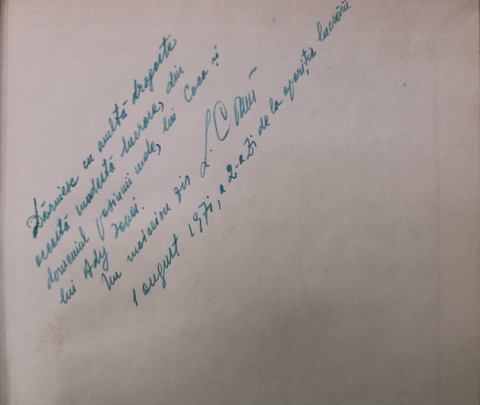 Dăruiesc cu multă dragoste
această modestă lucrare, din
domeniul pasiunii mele, lui Coca și
lui Ady
Un meseriaș
1 august 1971, a 2-a zi de la apariția lucrării